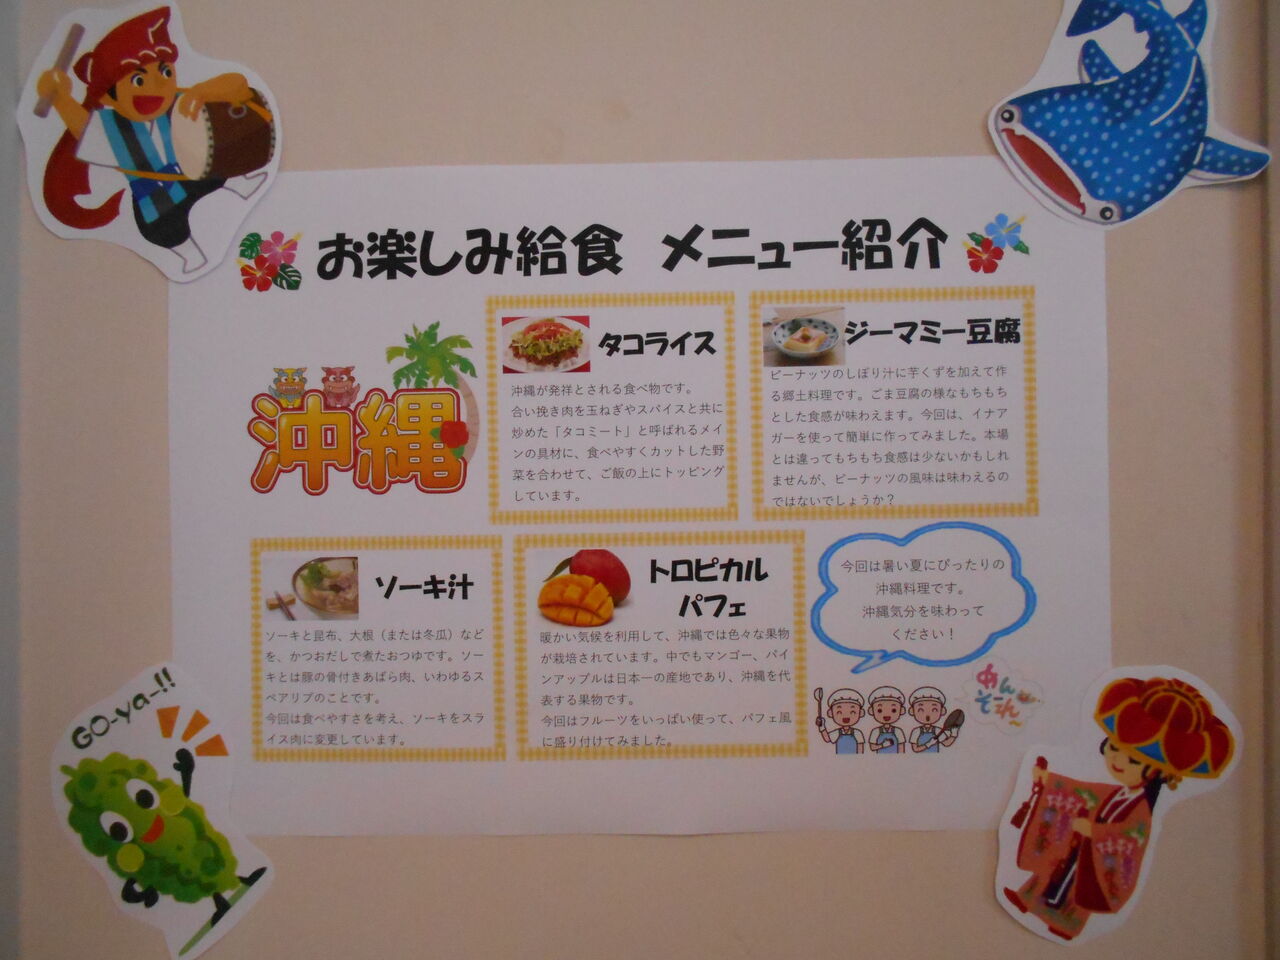 お楽しみ給食 メニュー紹介
沖縄
タコライス
沖縄が発祥とされる食べ物です。
合い挽き肉を玉ねぎやスパイスと共に
炒めた「タコミート」と呼ばれるメイ
ンの具材に、食べやすくカットした野
菜を合わせて、ご飯の上にトッピング
しています。
ジーマミー豆腐
ピーナッツのしぼり汁に芋くずを加えて作
る郷土料理です。ごま豆腐の様なもちもち
とした食感が味わえます。今回は、イナア
ガーを使って簡単に作ってみました。本場
とは違ってもちもち食感は少ないかもしれ
ませんが、ピーナッツの風味は味わえるの
ではないでしょうか？
ソーキ汁
ソーキと昆布、大根（または冬瓜）など
を、かつおだしで煮たおつゆです。ソー
キとは豚の骨付きあばら肉、いわゆるス
ペアリブのことです。
今回は食べやすさを考え、ソーキをスラ
イス肉に変更しています。
トロピカル
パフェ
暖かい気候を利用して、沖縄では色々な果物
が栽培されています。中でもマンゴー、パイ
ンアップルは日本一の産地であり、沖縄を代
表する果物です。
今回はフルーツをいっぱい使って、パフェ風
に盛り付けてみました。
今回は暑い夏にぴったりの
沖縄料理です。
沖縄気分を味わって
ください！
めん
そーれ
GO-ya-!!